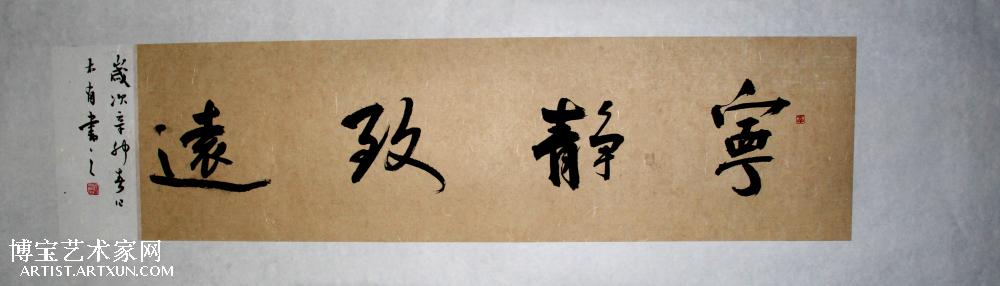 寧静致遠
歲次辛卯春日
書之
博宝艺术家网
ARTIST.ARTXUN.COM